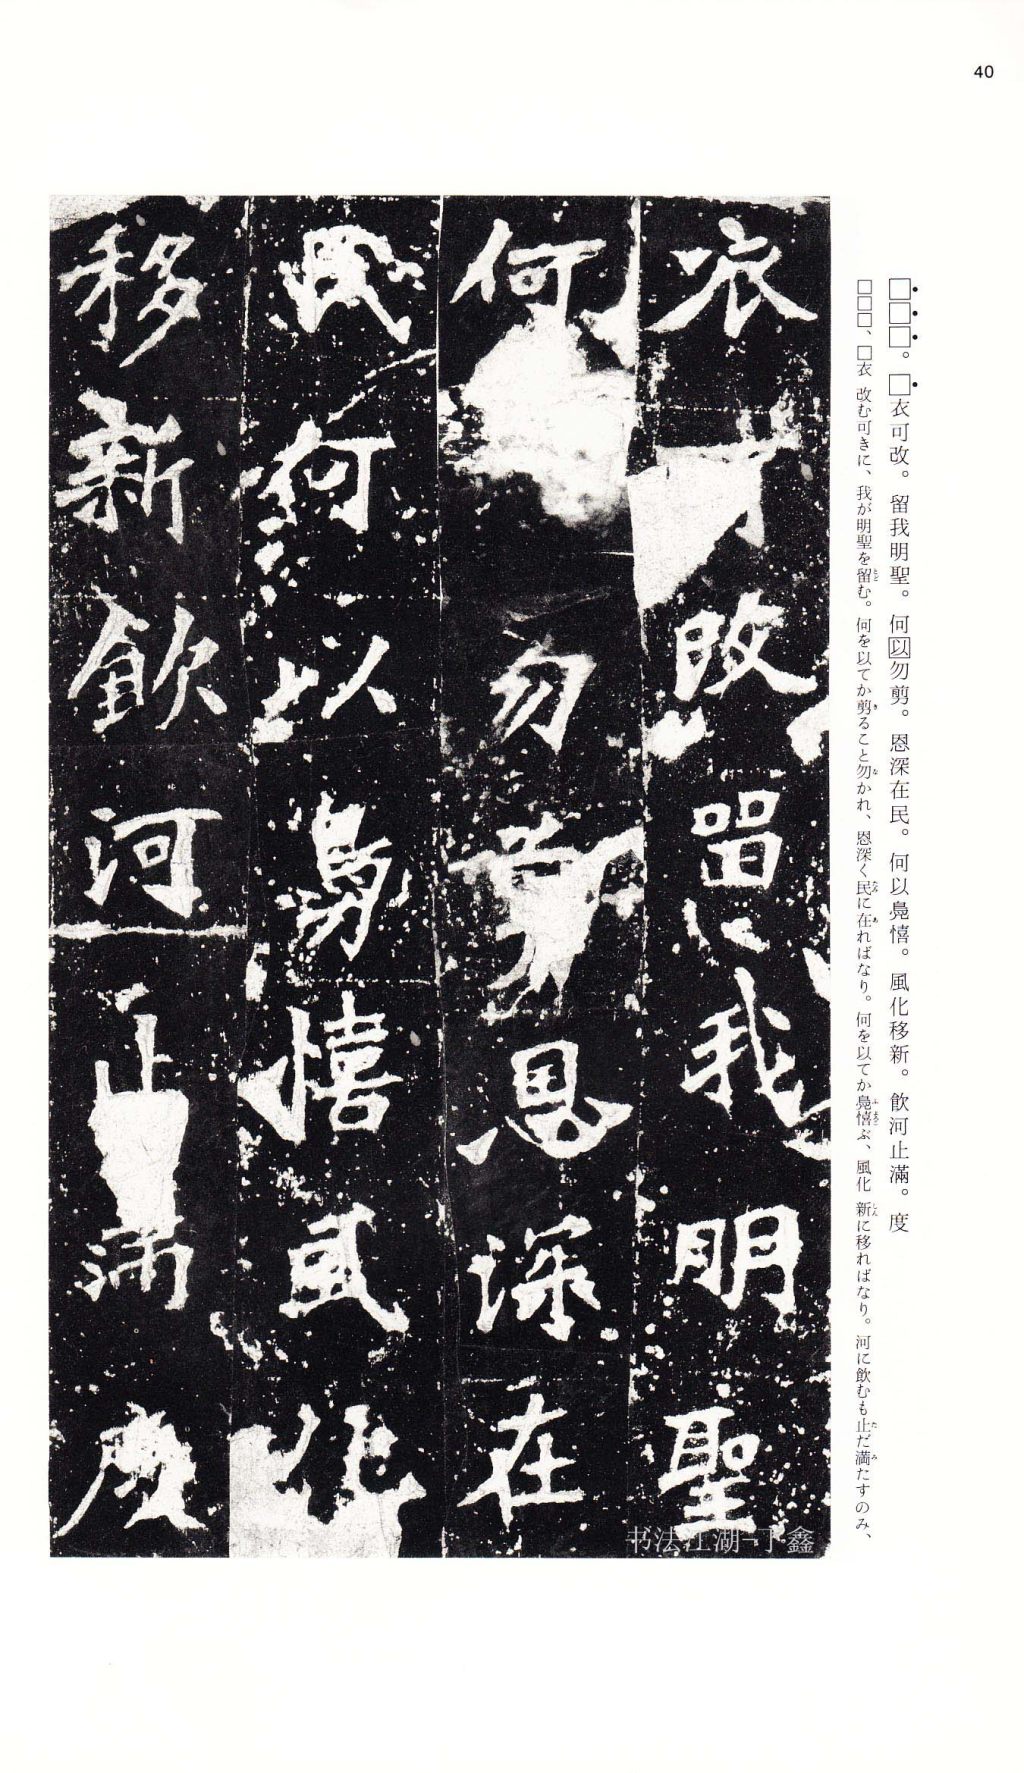 40
□□□。□衣可改。留我明聖。何以勿剪。恩深在民。何以鳧憘。風化移新。飲河止滿。度
□□□、□衣 改む可きに、我が明聖を留む。何を以てか剪ること勿かれ、恩深く民に在ればなり。何を以てか鳧憘ぶ、風化 新に移ればなり。河に飲むも止だ満たすのみ、
衣可改留我明聖
何勿剪恩深在
民何以鳧憘風化
移新飲河止滿度
书法江湖-丁鑫